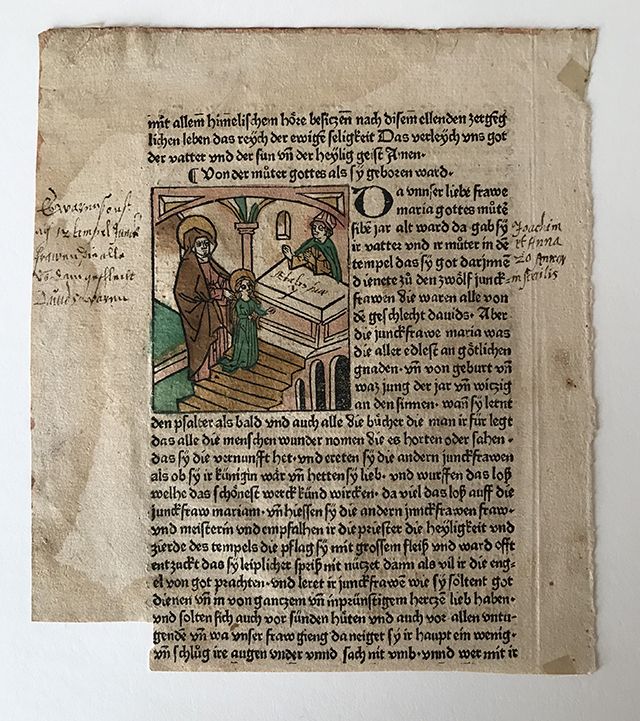 mit allem himelischem höre besitzen̄ nach disem ellenden zergēg
lichen leben das reych der ewigē seligkeit Das verleych vns got
der vatter vnd der sun vn̄ der heylig geist A·nen·
¶ Von der můter gottes als sy geboren ward·
Da vnnser liebe frawe
maria gottes můtē
sibē jar alt ward da gab sy
ir vatter vnd ir můter in dē
tempel das sy got darjnnē
dienete zů den zwölf junck⸗
frawen die waren alle von
dē geschlecht dauids· Aber
die junckfrawe maria was
die aller edlest an götlichen
gnaden· vn̄ von geburt vn̄
waz jung der jar vn̄ witzig
an den sinnen· wan̄ sy lernt
den psalter als bald vnd auch alle die bůcher die man ir für legt
das alle die menschen wunder nomen die es horten oder sahen·
das sy die vernunfft het· vnd ereten sy die andern junckfrawen
als ob sy ir künigin wär vn̄ hetten sy lieb· vnd wurffen das loß
welhe das schönest werck künd wircken· da viel das loß auff die
junckfraw mariam· vn̄ hiessen sy die andern junckfrawen fraw·
vnd meisterin vnd empfalhen ir die priester die heyligkeit vnd
zierde des tempels die pflag sy mit grossem fleiß vnd ward offt
entzuckt das sy leiplicher speiß nit nützet dann als vil ir die eng⸗
el von got prachten· vnd leret ir junckfrawen wie sy söltent got
dienen vn̄ in von gantzem vn̄ inprünstigem hertzen lieb haben·
vnd solten sich auch vor sünden hüten vnd auch vor allen vntu⸗
gende vn̄ wa vnser fraw gieng da neiget sy ir haupt ein wenig·
vn̄ schlůg ire augen vnder vnnd sach nit vmb· vnnd wer mit ir
Joachim
et Anna